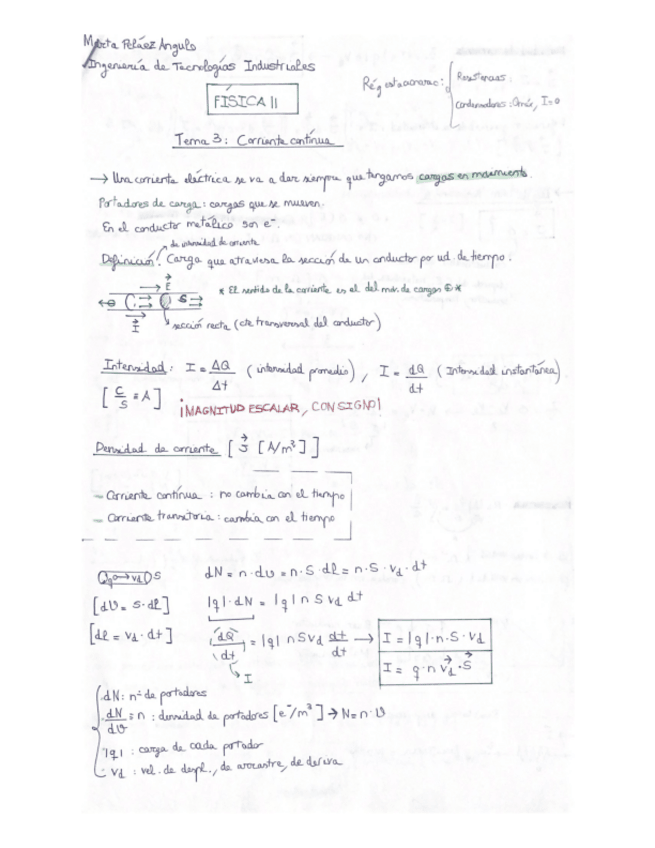 Marta Peláez Angulo
Ingeniería de Tecnologías Industriales
FÍSICA II
Rég estacionario:
Resistencias:
Condensadores: Cerrás, I=0
Tema 3: Corriente contínua
→ Una corriente eléctrica se va a dar siempre que tengamos cargas en movimiento.
Portadores de carga: cargas que se mueven.
En el conductor metálico son e⁻.
de intensidad de corriente
Definición: Carga que atraviesa la sección de un conductor por ud. de tiempo.
E
* El sentido de la corriente es el del mov. de cargas ⊕ *
S
I
sección recta (cte transversal del conductor)
Intensidad: I = ΔQ/Δt (intensidad promedio), I = dQ/dt (Intensidad instantánea).
[C/S = A] ¡MAGNITUD ESCALAR, CON SIGNO!
Densidad de corriente [J [A/m²]]
- Corriente contínua: no cambia con el tiempo
- Corriente transitoria: cambia con el tiempo
q → vd S
dN = n · dV = n · S · dl = n · S · vd · dt
[dV = S · dl]
|q| · dN = |q| n S vd dt
[dl = vd · dt]
dQ/dt = |q| n S vd dt/dt → I = |q| · n · S · vd
I
I = q · n vd · S
dN: nº de portadores
dN/dV = n: densidad de portadores [e⁻/m³] → N = n · V
|q|: carga de cada portador
vd: vel. de despl., de arrastre, de deriva